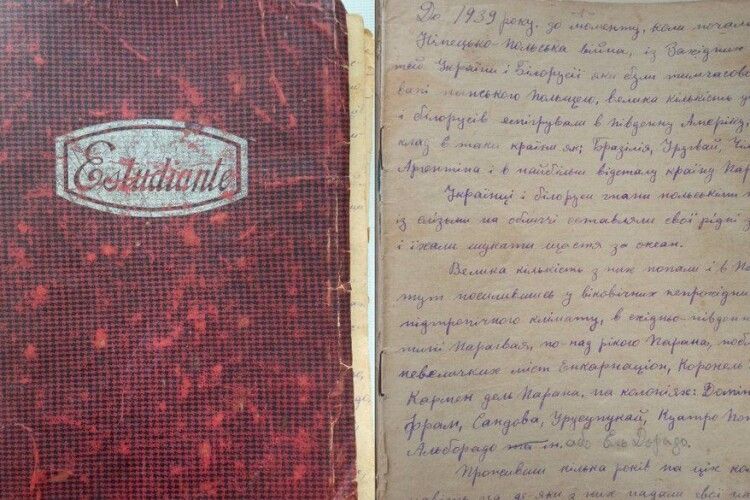 Estudiante
До 1939 року. до моменту, коли почала
Німецько-Польська війна, із Західних
Україні і Білорусії які були тимчасово
панською Польщею, велика кількість
і білорусів емігрували в Південну Америку,
клад в такі країни як; Бразілія, Уругвай,
Аргентіна і в найбільш відсталу країну
Українці і білоруси гнані польськими
із слізьми на обличчі оставляли свої рідні
і їхали шукати щастя за океан.
Велика кількість з них попали і в
тут поселившись у віковічних непрохідни
підтропічного клімату, в східньо-південні
Парагвая, по-над рікою Парана,
невеличких міст Енкарнаціон, Коронель
Кармен дель Парана, на колоніях:
Фрам, Сандова, Урусапукай, Куатро
Альборадо ін. або Ель Дорадо.
Проживши кілька років на ціх
на де які з них